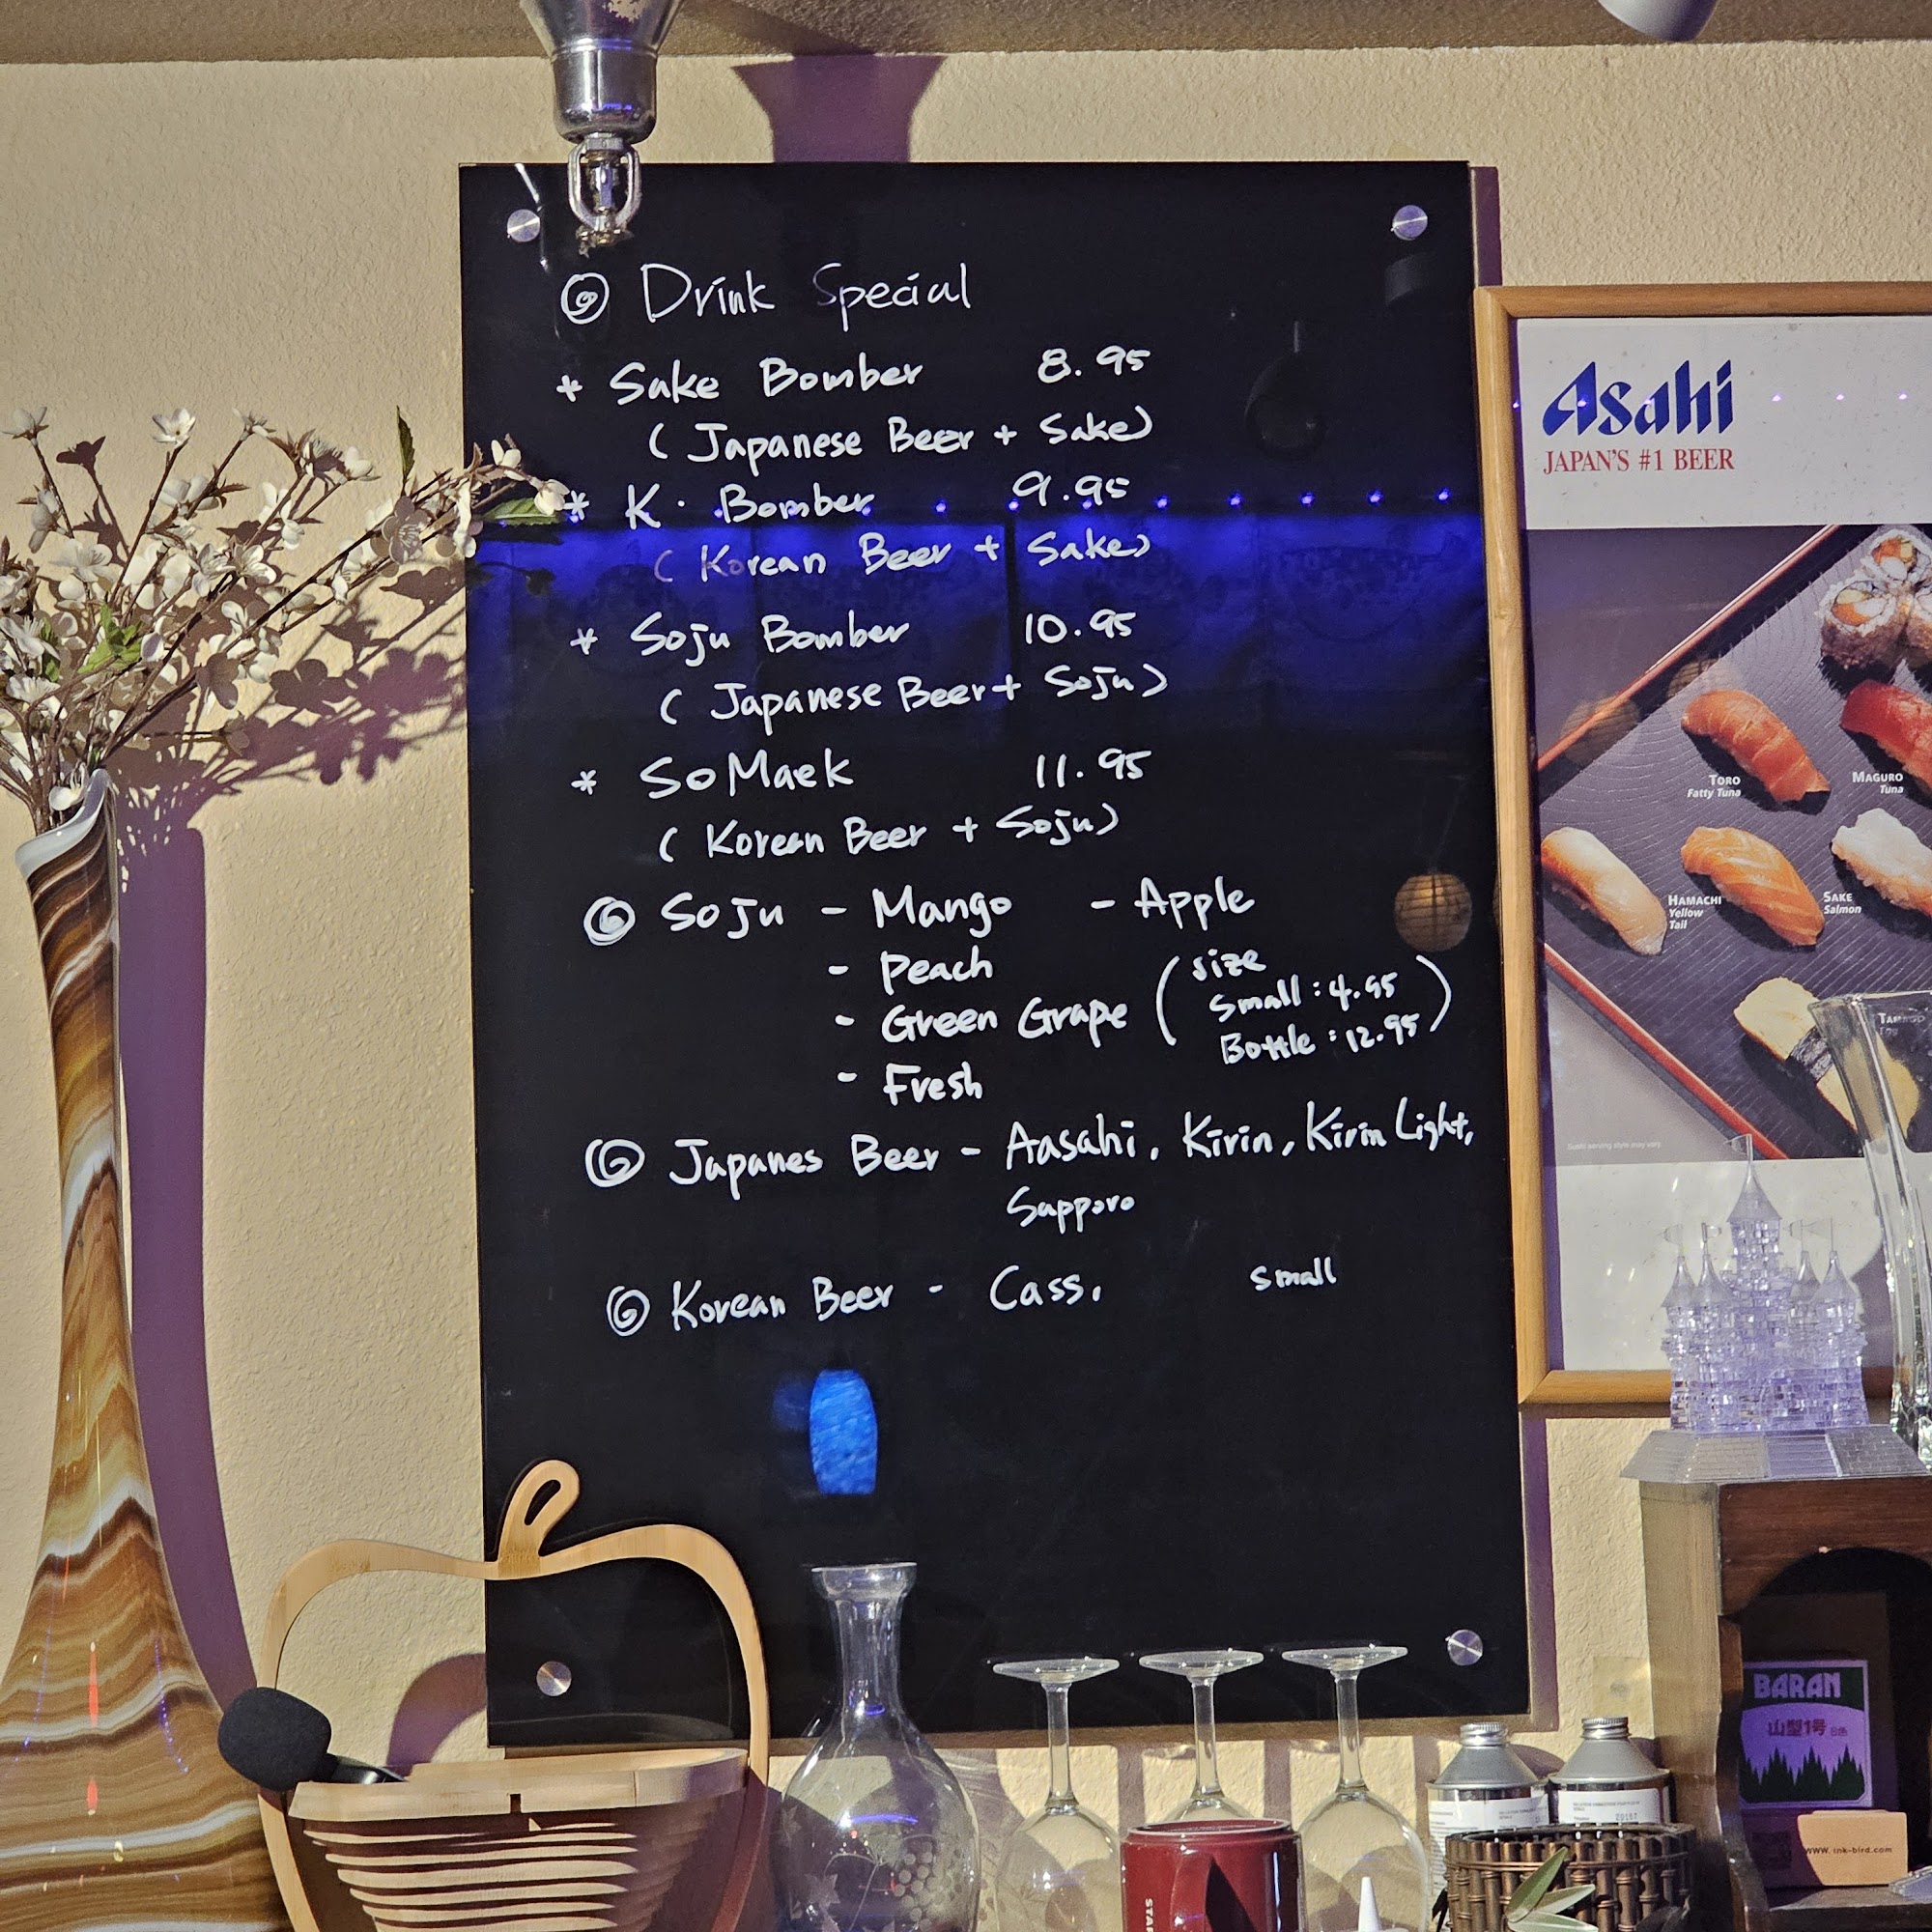 Drink Special
* Sake Bomber 8.95
( Japanese Beer + Sake)
* K. Bomber 9.95
( Korean Beer + Sake)
* Soju Bomber 10.95
( Japanese Beer + Soju)
* SoMaek 11.95
( Korean Beer + Soju)
Soju - Mango - Apple
- Peach
- Green Grape ( size
Small : 4.95
Bottle : 12.95 )
- Fresh
Japanes Beer - Aasahi, Kirin, Kirin Light,
Sapporo
Korean Beer - Cass, small
Asahi
JAPAN'S #1 BEER
TORO
Fatty Tuna
MAGURO
Tuna
HAMACHI
Yellow
Tail
SAKE
Salmon
BARAN
山型1号
www.ink-bird.com